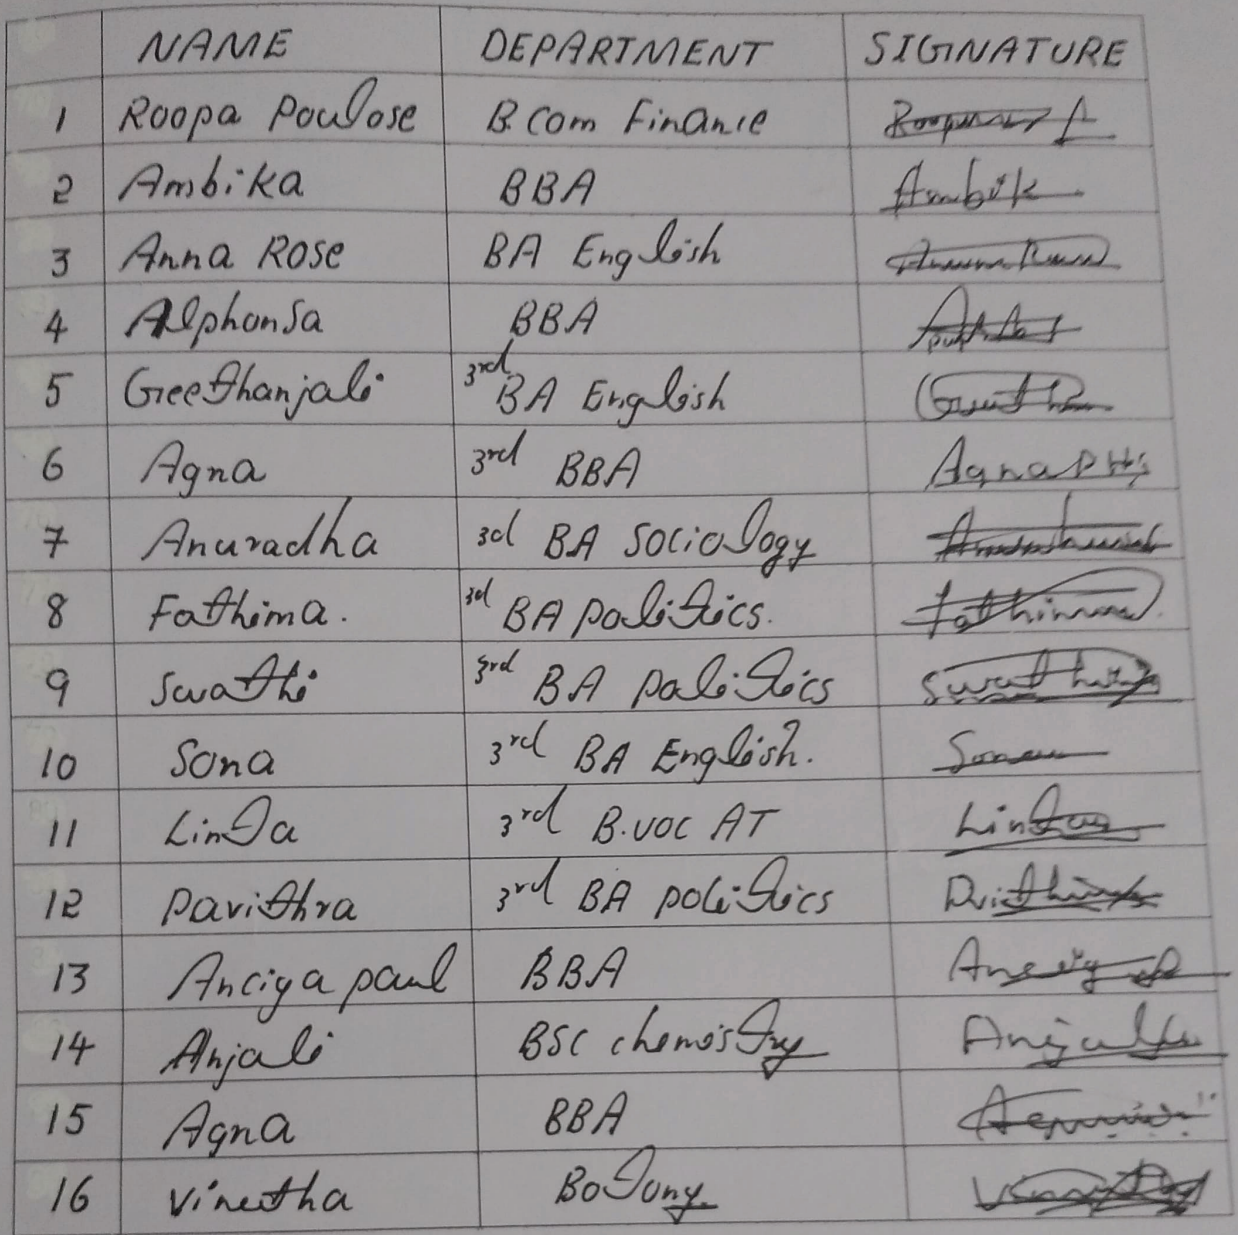 NAME DEPARTMENT SIGNATURE
1 Roopa Poulose B.Com Finance
2 Ambika BBA Ambik
3 Anna Rose BA English
4 Alphonsa BBA
5 Geethanjali 3rd BA English
6 Agna 3rd BBA Agna
7 Anuradha 3rd BA Sociology
8 Fathima. 3rd BA politics. Fathima
9 Swathi 3rd BA politics Swathi
10 Sona 3rd BA English. Sona
11 Linta 3rd B.voc AT Linta
12 Pavithra 3rd BA politics
13 Anciya paul BBA
14 Anjali BSC chemistry Anjali
15 Agna BBA
16 Vineetha Botany